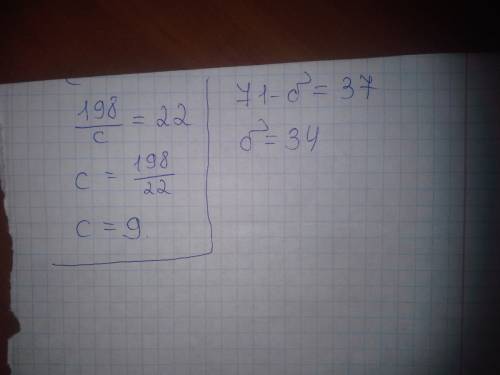 198/c = 22
c = 198/22
c = 9.
71-б = 37
б = 34